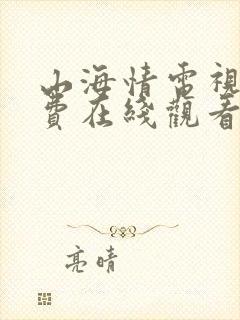 山海情電視
費在綫觀看
亮晴